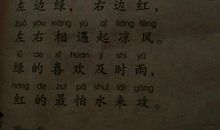 左边绿，右边红，
zuǒ yòu xiāng yù qǐ liáng fēng
左右相遇起凉风。
lǜ de xǐ huan jí shí yǔ
绿的喜欢及时雨，
hóng de zuì pà shuǐ lái gōng
红的最怕水来攻。